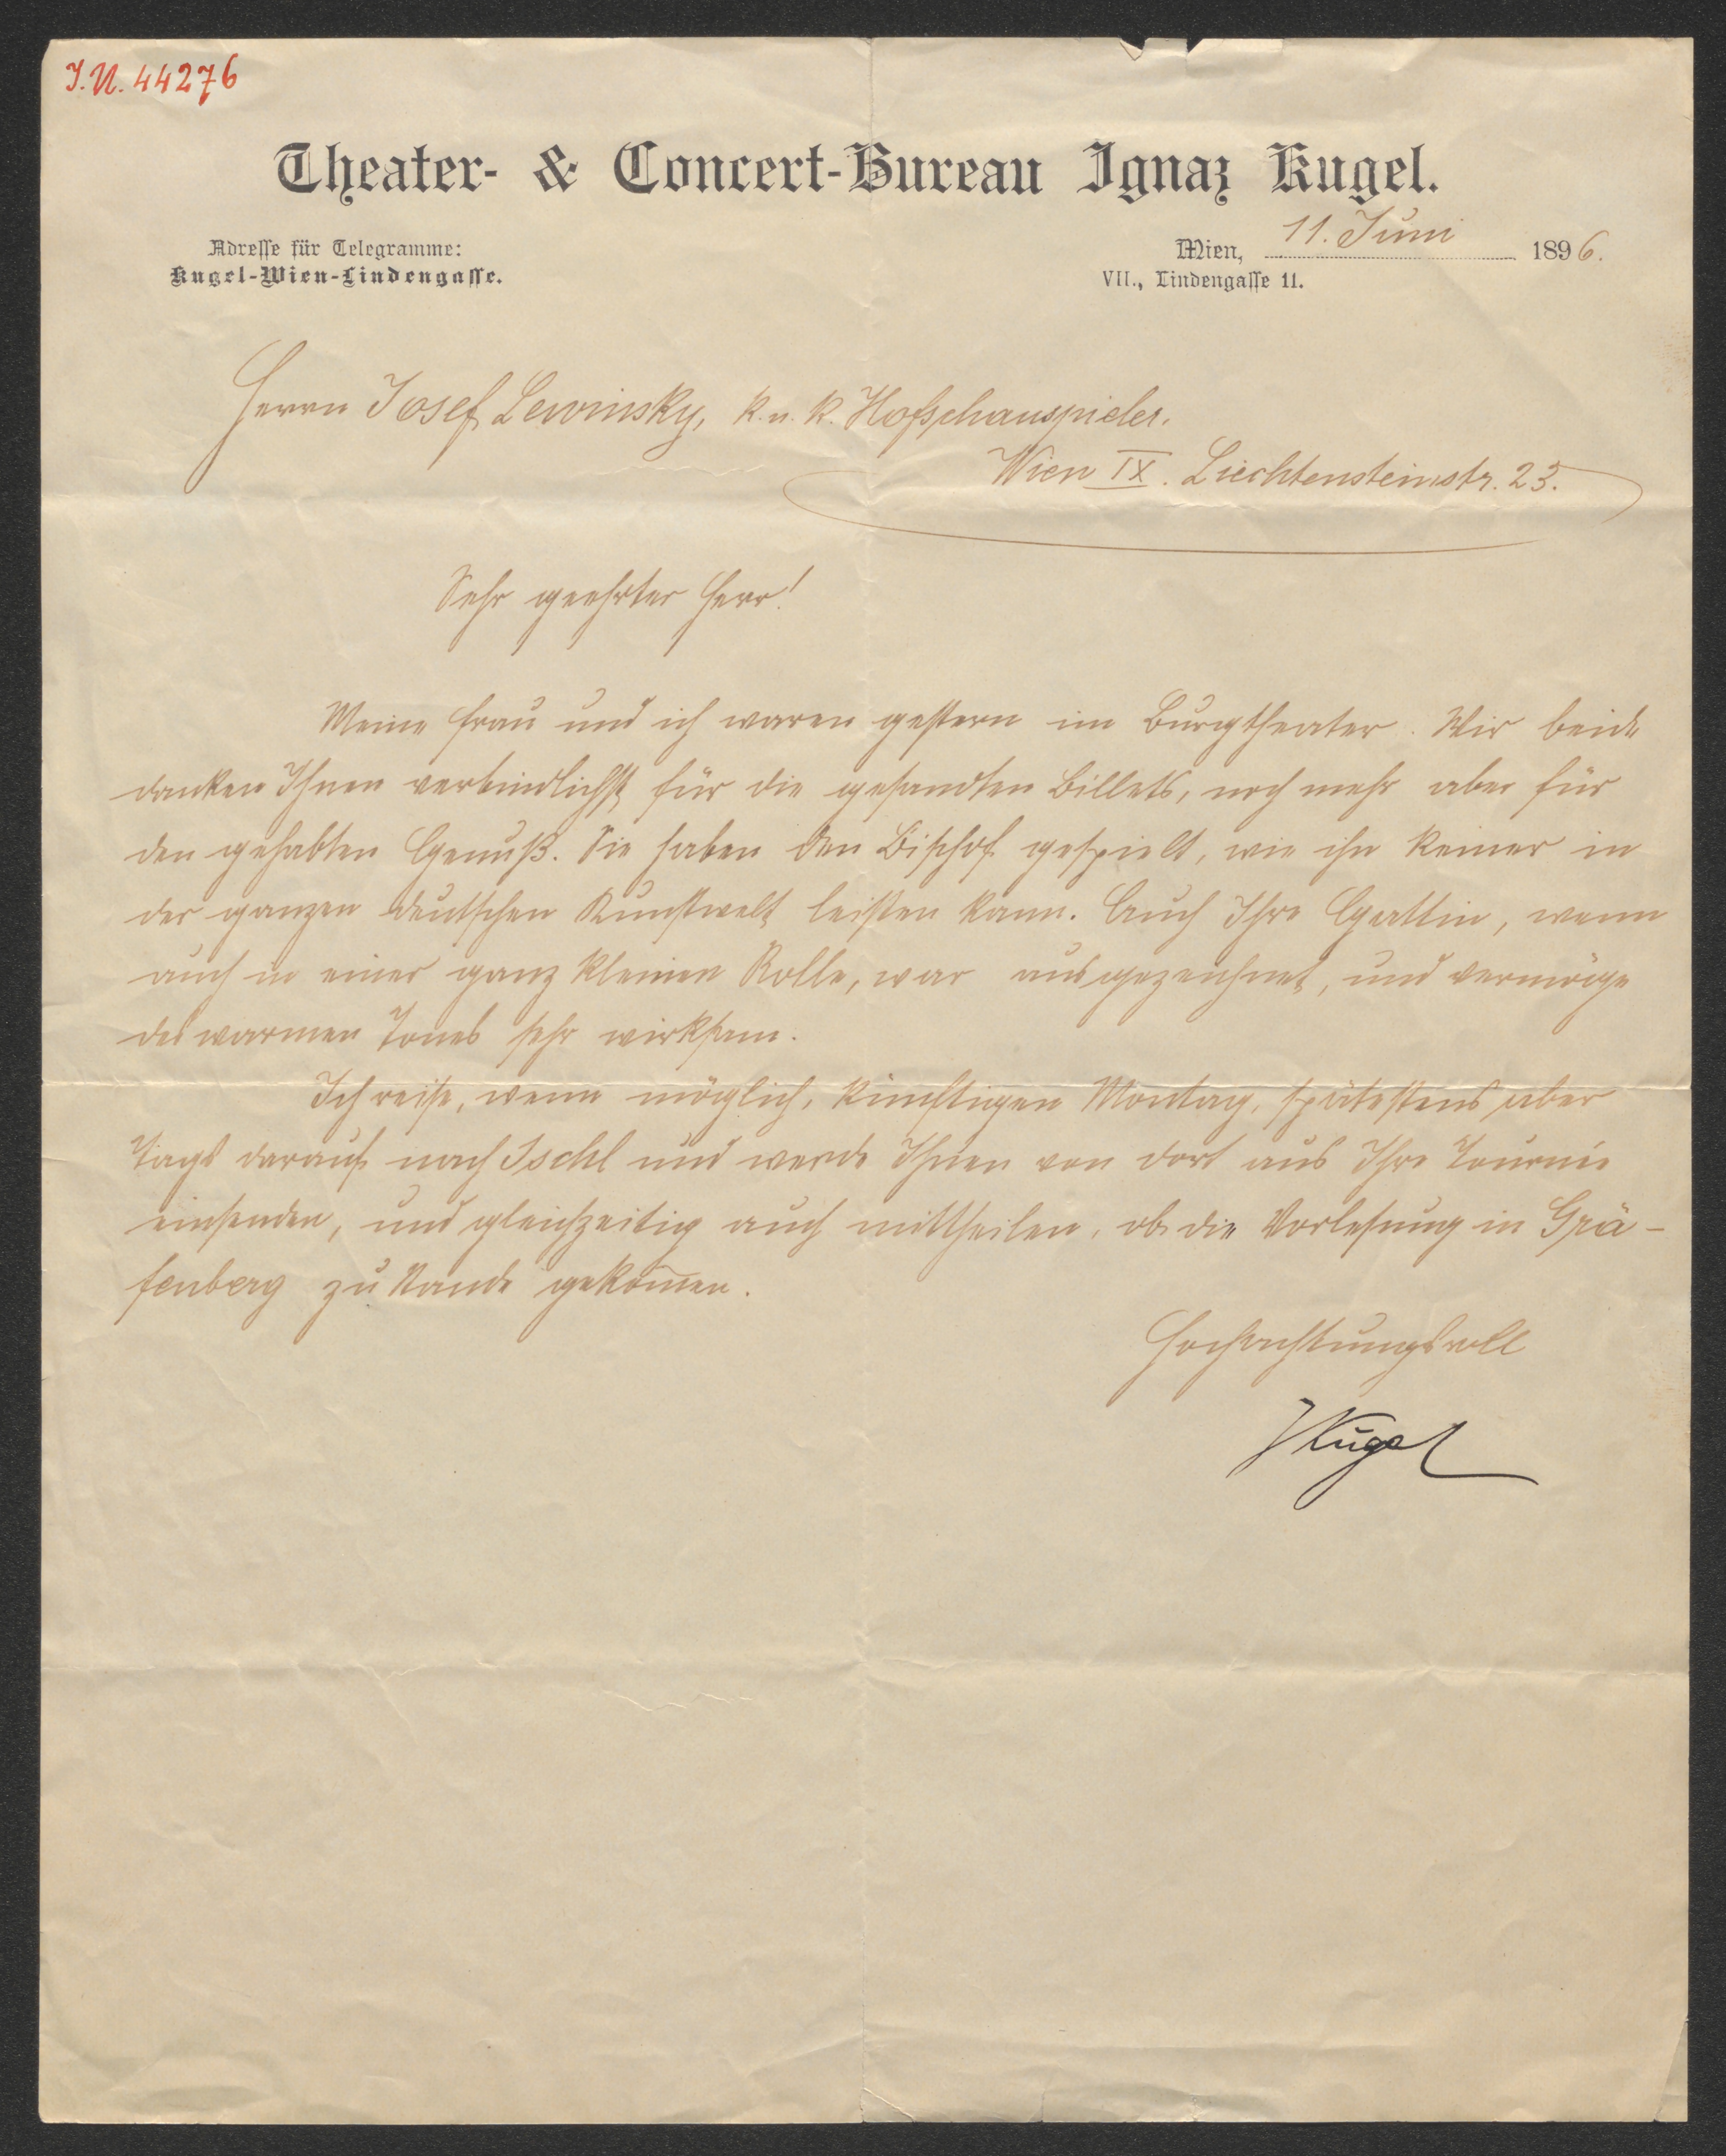 J.N. 44276
Theater- & Concert-Bureau Ignaz Kugel.
Adresse für Telegramme:
Kugel-Wien-Lindengasse.
Wien, 11. Juni 1896.
VII., Lindengasse 11.
Herrn Josef Lewinsky, k. u. k. Hofschauspieler.
Wien IX. Liechtensteinstr. 23.
Sehr geehrter Herr!
Meine Frau und ich waren gestern im Burgtheater. Wir beide
danken Ihnen verbindlichst für die gesandten Billets, noch mehr aber für
den gehabten Genuß. Sie haben den Bischof gespielt, wie ihn keiner in
der ganzen deutschen Kunstwelt leisten kann. Auch Ihre Gattin, wenn
auch in einer ganz kleinen Rolle, war ausgezeichnet, und vermöge
des warmen Tones sehr wirksam.
Ich reise, wenn möglich, künftigen Montag, spätestens aber
Tags darauf nach Ischl und werde Ihnen von dort aus Ihre Tournée
einsenden, und gleichzeitig auch mittheilen, ob die Vorlesung in Grä-
fenberg zu Stande gekom̄en.
Hochachtungsvoll
IKugel